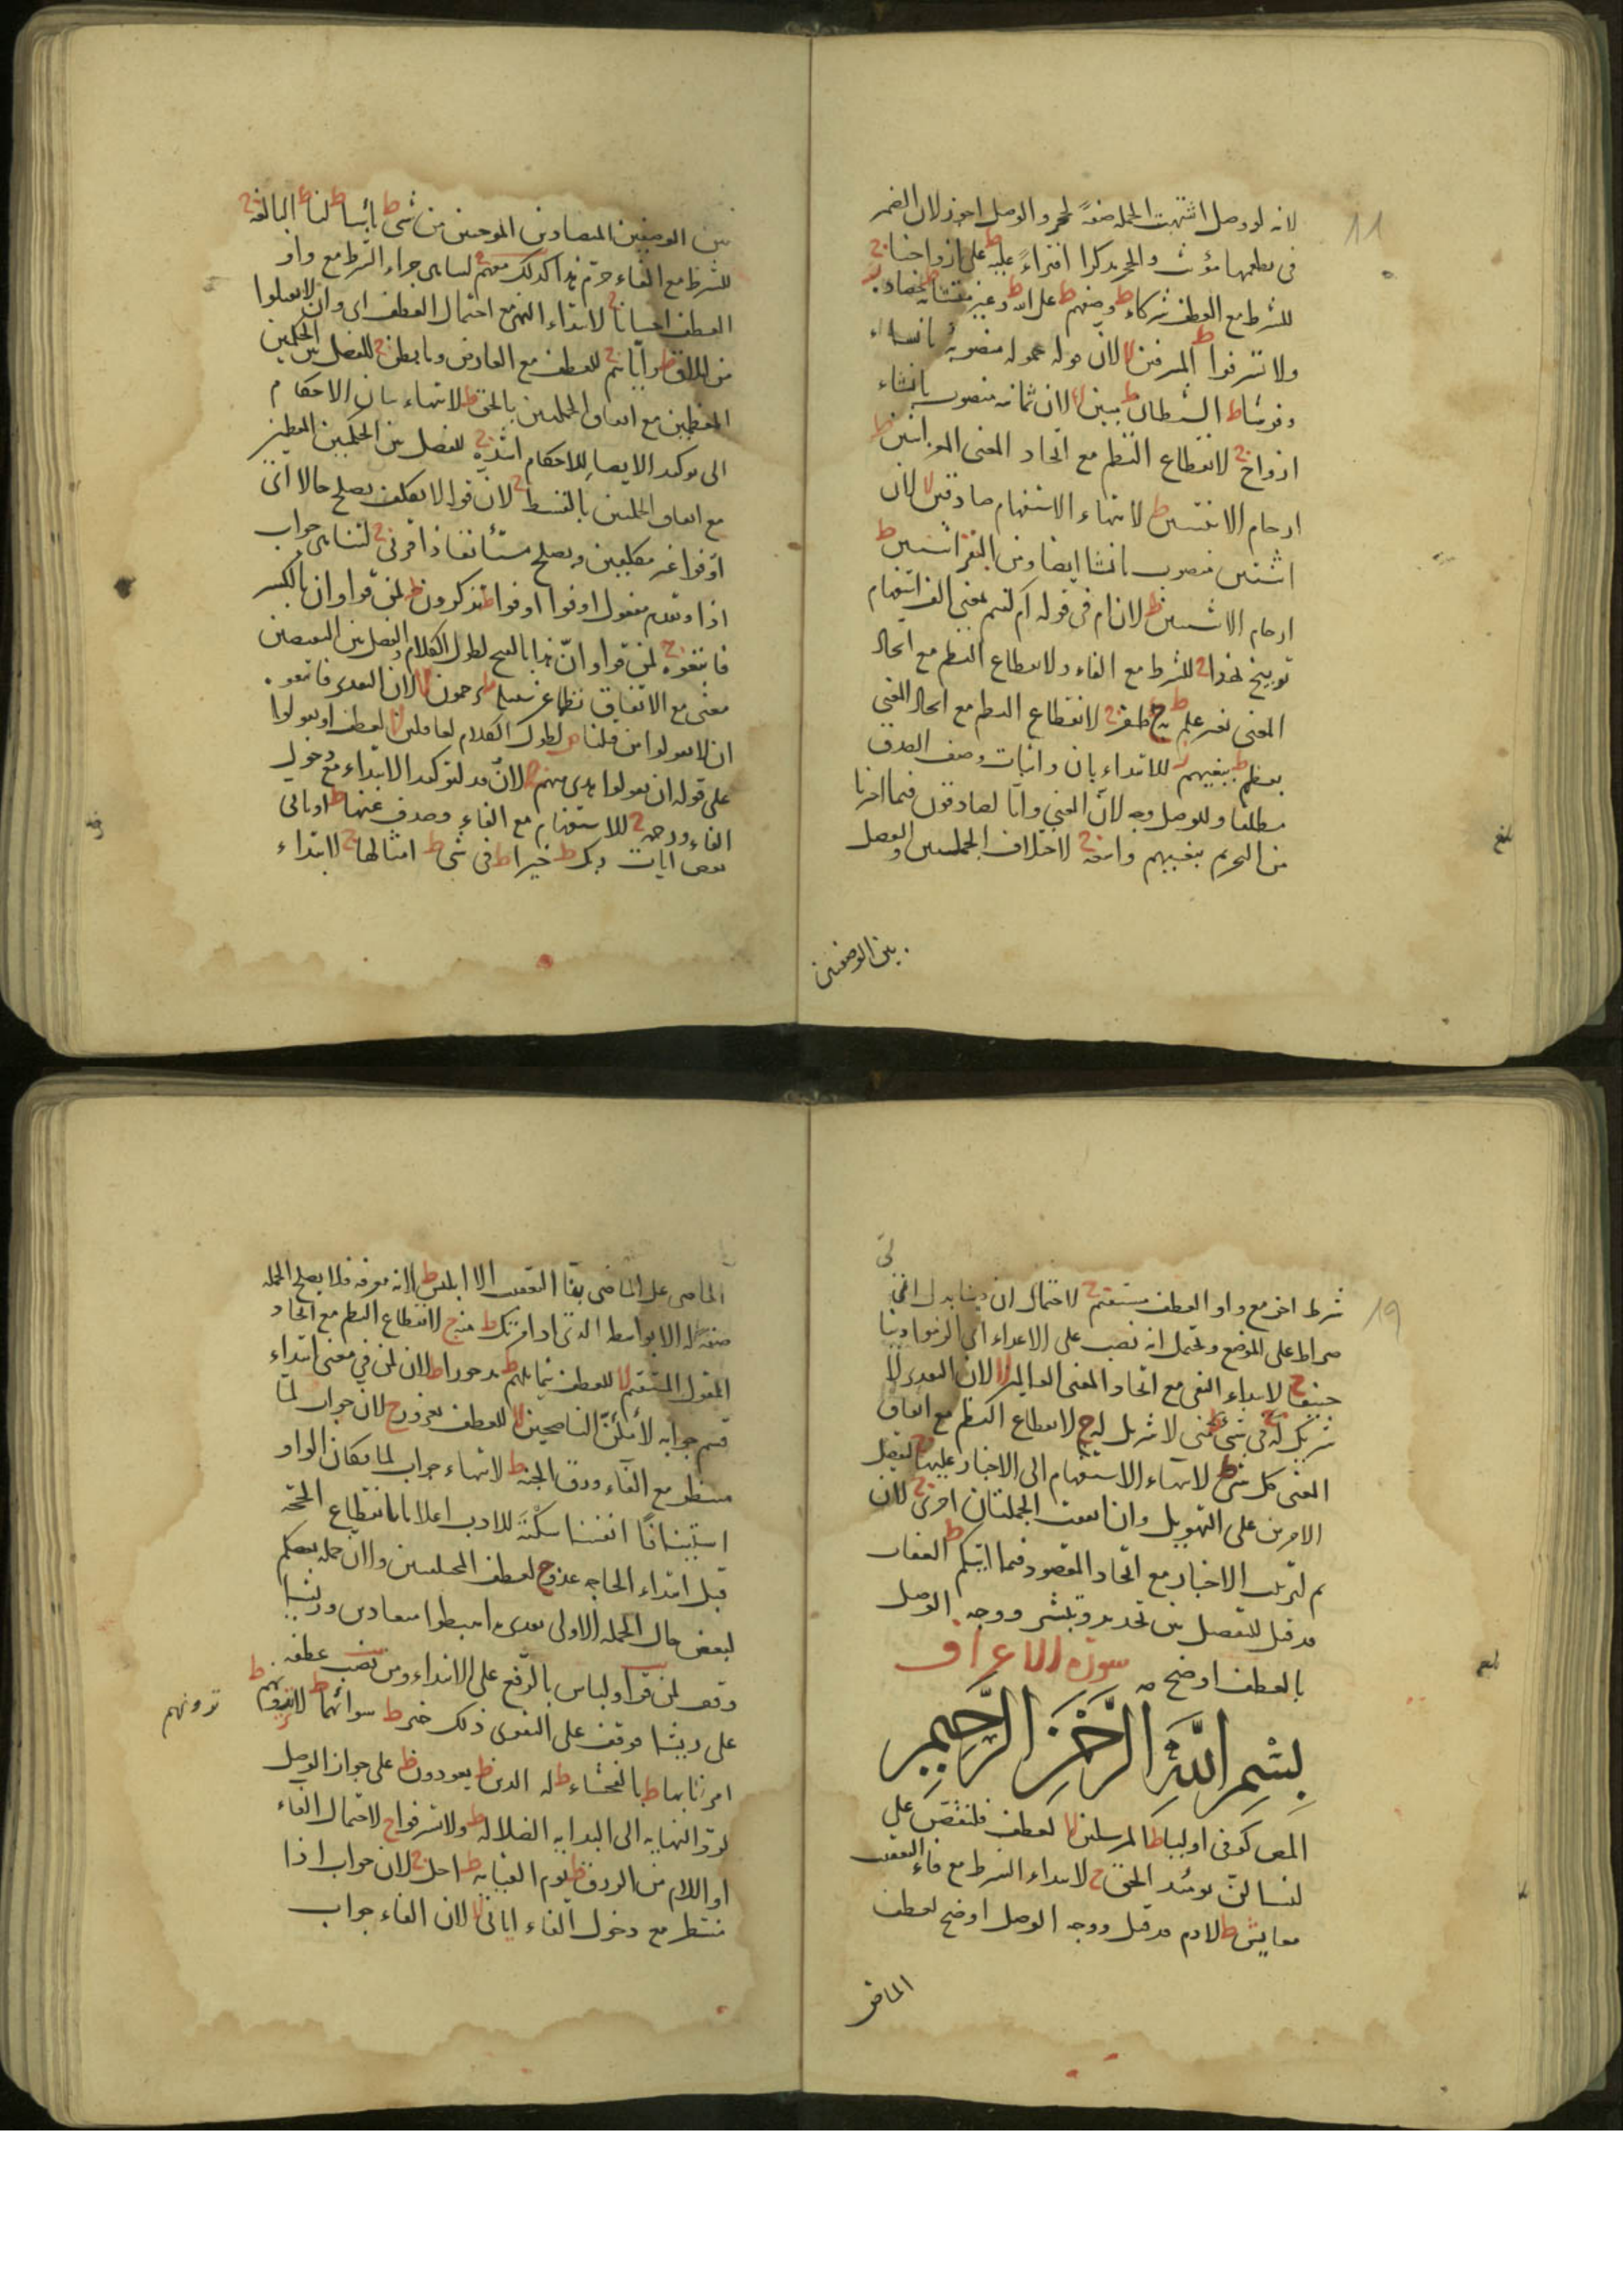 لانه لو وصل اشتبهت الجملة صفة لحجر والوصل اجوز لان الضمير
في يطعمها مؤنث والحجر مذكر افتراء عليه ط على ازواجنا ج
للشرط مع العطف شركاء ط وصفهم ط على الله ط وغير متشابه ط حصاده ز
ولا تسرفوا ط المسرفين لا لان قوله حمولة منصوبة بانشاء
وفرشا ط الشيطان ط مبين لا لان ثمانية منصوب بانشاء
ازواج ج لانقطاع النظم مع اتحاد المعنى المعز اثنين ط
ارحام الانثيين ط لانتهاء الاستفهام صادقين لا لان
اثنين منصوب بانشا ايضا ومن البقر اثنين ط
ارحام الانثيين ط لان ام في قوله ام كنتم بمعنى الف استفهام
توبيخ بهذا ج للشرط مع الفاء ولانقطاع النظم مع اتحاد
المعنى بغير علم ط ظفر ج لانقطاع النظم مع اتحاد المعنى
بعظم ط ببغيهم ز للابتداء بان واثبات وصف الصدق
مطلقا وللوصل وجه لان المعنى وانا لصادقون فيما اخبرنا
من التحريم ببغيهم واسعة ج لاختلاف الجملتين والفصل
بين الوصفين
بين الوصفين المتضادين الموحيين من شيء ط بأسنا ط لنا ط البالغة ج
للشرط مع الفاء حرم هذا كذلك معهم ج لتناهي جزاء الشرط مع واو
العطف احسانا ج لابتداء النهي مع احتمال العطف اي وان لا تقتلوا
من املاق ط واياهم ج للعطف مع العارض وما بطن ج للفصل بين الحكمين
المعظمين مع اتفاق الجملتين بالحق ط لانتهاء بيان الاحكام
الى توكيد الايصاء للاحكام اشده ج للفصل بين الحكمين المعظمين
مع اتفاق الجملتين بالقسط ج لان قوله لا نكلف يصلح حالا اي
اوفوا غير مكلفين ويصلح مستأنفا ذا قربى ج لتناهي جواب
اذا وتقدم مفعول اوفوا اوفوا ط تذكرون ط لمن قرا وان بالكسر
فاتبعوه ج لمن قرا وان هذا بالفتح لطول الكلام والفصل بين النقيضين
معنى مع الاتفاق نظما عن سبيله ط يرحمون لا لان التقدير فاتبعوه
ان لا تقولوا من قبلنا ص لطول الكلام لغافلين لا لعطف او تقولوا
على قوله ان تقولوا اهدى منهم ج لان قد لتوكيد الابتداء مع دخول
الفاء ورحمة ج للاستفهام مع الفاء وصدف عنها ط او ياتي
بعض ايات ربك ط خيرا ط في شيء ط امثالها ج لابتداء
19
شرط اخر مع واو العطف مستقيم ج لاحتمال ان دينا بدل من
صراط على الموضع ويحتمل انه نصب على الاغراء اي الزموا دينا
حنيفا ج لابتداء النفي مع اتحاد المعنى العالمين لا لان التقدير لا
شريك له في شيء عنى لا شريك له ج لانقطاع النظم مع اتفاق
المعنى كل شيء ط لانتهاء الاستفهام الى الاخبار عليها ج لفصل
الامرين على التهويل وان اتفقت الجملتان اخرى ج لان
ثم لترتيب الاخبار مع اتحاد المقصود فيما اتيكم ط العقاب
قد قيل للتفصيل بين تحذير وتبشير ووجه الوصل
بالعطف اوضح
سورة الاعراف
بِسْمِ اللَّهِ الرَّحْمٰنِ الرَّحِيمِ
المص كوفي اولياء ط المرسلين لا لعطف فلنقصن على
لنسألن يومئذ الحق ج لابتداء الشرط مع فاء التعقيب
معايش ط لادم قد قيل ووجه الوصل اوضح لعطف
الماضي
الماضي على الماضي بفا التعقيب الا ابليس ط لانه معرفة فلا يصلح الجملة
صفة له الا بواسطة الذي اذ امرتك ط منه ج لانقطاع النظم مع اتحاد
المقول المستقيم لا للعطف شمائلهم ط مدحورا ط لان لمن في معنى ابتداء
قسم جوابه لاملأن الناصحين لا للعطف بغرور ج لان جواب لما
منتظر مع الفاء ورق الجنة ط لانتهاء جواب لما فكان الواو
استينافا انفسنا سكتة للادب اعلاما بانقطاع الحجة
قبل ابتداء الحاجة عدو ج لعطف المختلفتين والى ان جملة بعضكم
لبعض حال الجملة الاولى تقديره اهبطوا متعادين وريشا
وقف لمن قرا ولباس بالرفع على الابتداء ومن نصب عطفه
على ريشا فوقف على التقوى ذلك خير ط سوآتهما ط لا ترونهم ط
ترونهم
امرنا بها ط بالفحشاء ط له الدين ط تعودون ط على جواز الوصل
لرد النهاية الى البداية الضلالة ط ولا تسرفوا ج لاحتمال الفاء
او اللام من الرزق ط يوم القيامة ط اجل ج لان جواب اذا
منتظر مع دخول الفاء اياتي لا لان الفاء جواب